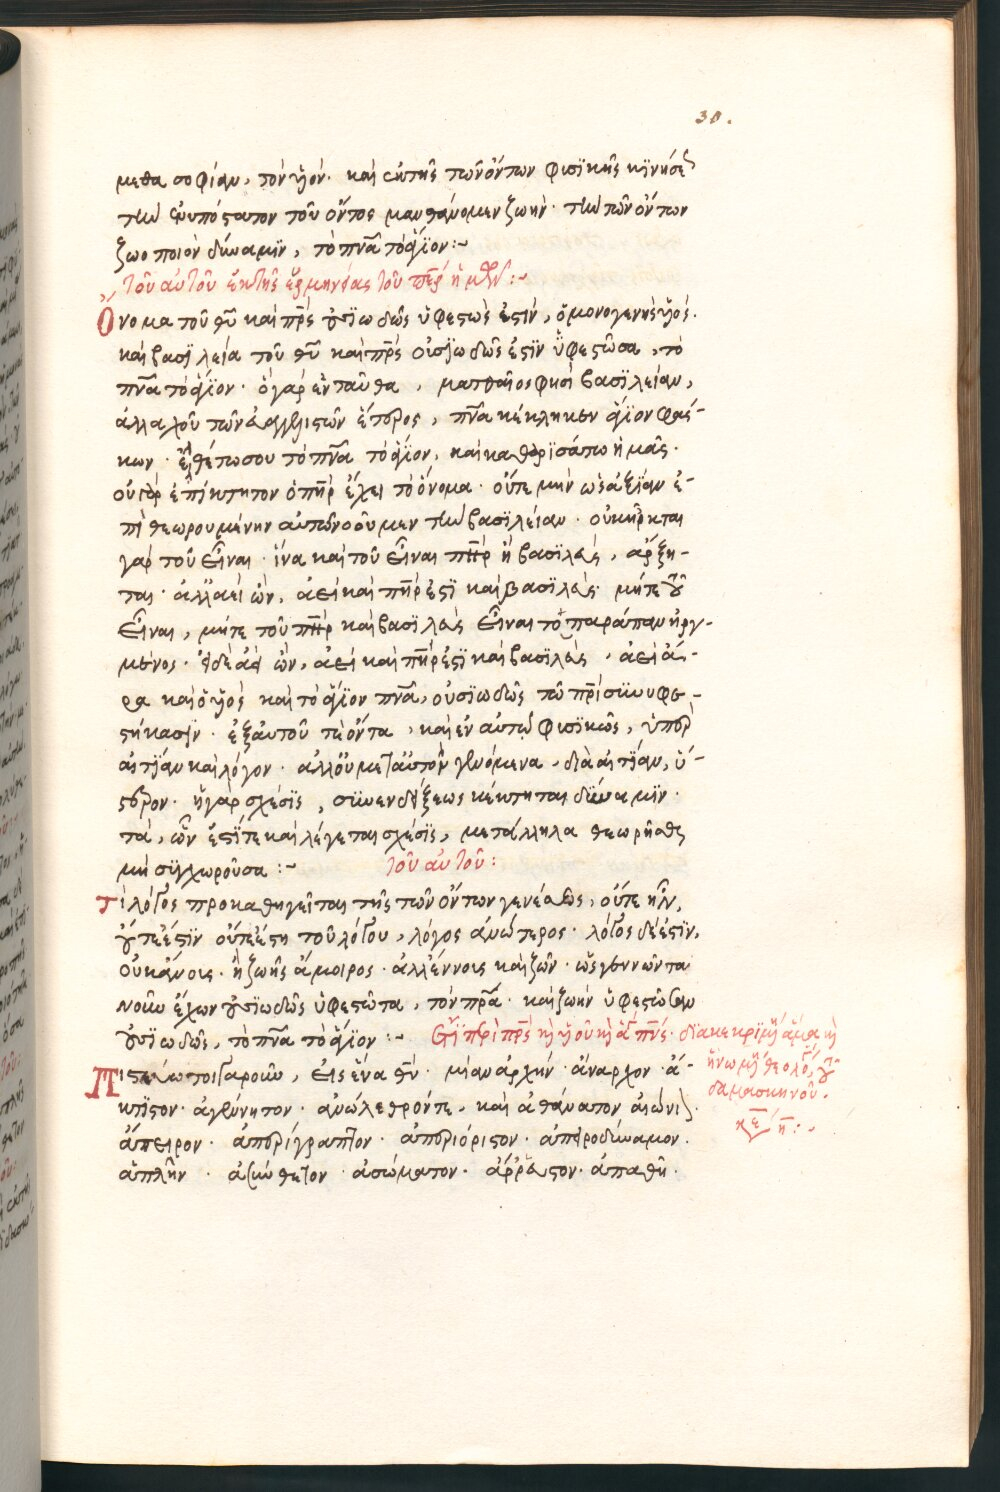 30.
μεθα σοφίαν, τὸν υἱόν· καὶ ἐκ τῆς τῶν ὄντων φυσϊκῆς κϊνήσε
τὴν ἐνυπόστατον τοῦ ὄντος μανθάνομεν ζωὴν· τὴν τῶν ὄντων
ζωοποιὸν δύναμϊν, τὸ πνᾶ τὸ ἅγϊον:~
τοῦ αὐτοῦ ἐκ τῆς ἑρμηνείας τοῦ περ ἡμῶν:~
Ὄνομα τοῦ θῦ καὶ πρς οὐσϊωδῶς ὑφεστώς ἐστὶν, ὁ μονογενὴς υἱός.
καὶ βασϊλεία τοῦ θῦ καὶ πρς οὐσϊωδῶς ἐστϊν ὑφεστῶσα, τὸ
πνᾶ τὸ ἅγϊον· ὃ γὰρ ἐνταῦθα, ματθαῖος φησὶ βασϊλείαν,
ἀλλαχοῦ τῶν εὐαγγελιστῶν ἕτερος, πνᾶ κέκληκεν ἅγϊον φάσ-
κων· ἐλθέτω σου τὸ πνᾶ τὸ ἅγϊον, καὶ καθαρϊσάτω ἡμᾶς·
οὐ γὰρ ἐπίκτητον ὁ πῆρ ἔχει τὸ ὄνομα· οὔτε μὴν ὡς ἀξίαν ἐ-
πιθεωρουμένην αὐτῶ νοοῦμεν τὴν βασϊλείαν· οὐκ ἦρκται
γὰρ τοῦ εἶναι· ἵνα καὶ τοῦ εἶναι πῆρ ἢ βασϊλεὺς, ἄρξη-
ται· ἀλλ' ἀεὶ ὢν, ἀεὶ καὶ πῆρ ἐστϊ καὶ βασϊλεὺς· μήτε τοῦ
εἶναι, μήτε τοῦ πῆρ καὶ βασϊλεὺς εἶναι τὸ παράπαν ἠργ-
μένος· εἰ δὲ ἀεὶ ὢν, ἀεὶ καὶ πῆρ ἐστϊ καὶ βασϊλεὺς, ἀεὶ ἄ-
ρα καὶ ὁ υἱὸς καὶ τὸ ἅγϊον πνᾶ, οὐσϊωδῶς τῶ πρὶ συνυφε-
στήκασϊν· ἐξ αὐτοῦ τὲ ὄντα, καὶ ἐν αὐτῷ φυσϊκῶς, ὑπὲρ
αἰτϊαν καὶ λόγον· ἀλλ' οὐ μετ' αὐτὸν γενόμενα, διὰ αἰτϊαν, ὕ-
στερον· ἡ γὰρ σχέσϊς, συνενδείξεως κέκτηται δύναμϊν·
τὰ, ὧν ἐστϊ τε καὶ λέγεται σχέσϊς, μετ' ἄλληλα θεωρῆσθαι
μὴ συγχωροῦσα:~ τοῦ αὐτοῦ:
Τὶ λόγος προκαθηγεῖται τῆς τῶν ὄντων γενέσεως, οὔτε ἦν,
οὔτε ἐστϊν οὔτε ἔσται τοῦ λόγου, λόγος ἀνώτερος· λόγος δέ ἐστϊν,
οὐκ ἄνους· ἢ ζωῆς ἄμοιρος· ἀλλ' ἔννους καὶ ζῶν· ὡς γεννῶντα
νοῦν ἔχων οὐσϊωδῶς ὑφεστῶτα, τὸν πρᾶ· καὶ ζωὴν ὑφεστῶσαν
οὐσϊωδῶς, τὸ πνᾶ τὸ ἅγϊον:~ Ἔτι περὶ πρς κ υἱοῦ κ ἁγ πνς· διακεκρϊμένη ἅμα κ
ἡνωμένη θεολογ, τοῦ
δαμασκηνοῦ·
κε η:~
Πιστεύω τοιγαροῦν, εἰς ἕνα θν· μίαν ἀρχὴν· ἄναρχον· ἄ-
κτϊστον· ἀγέννητον· ἀνώλεθρόν τε, καὶ ἀθάνατον αἰώνι
ἄπειρον· ἀπερίγραπτον· ἀπεριόριστον· ἀπειροδύναμον·
ἁπλῆν· ἀσύνθετον· ἀσώματον· ἄρρευστον· ἀπαθῆ·